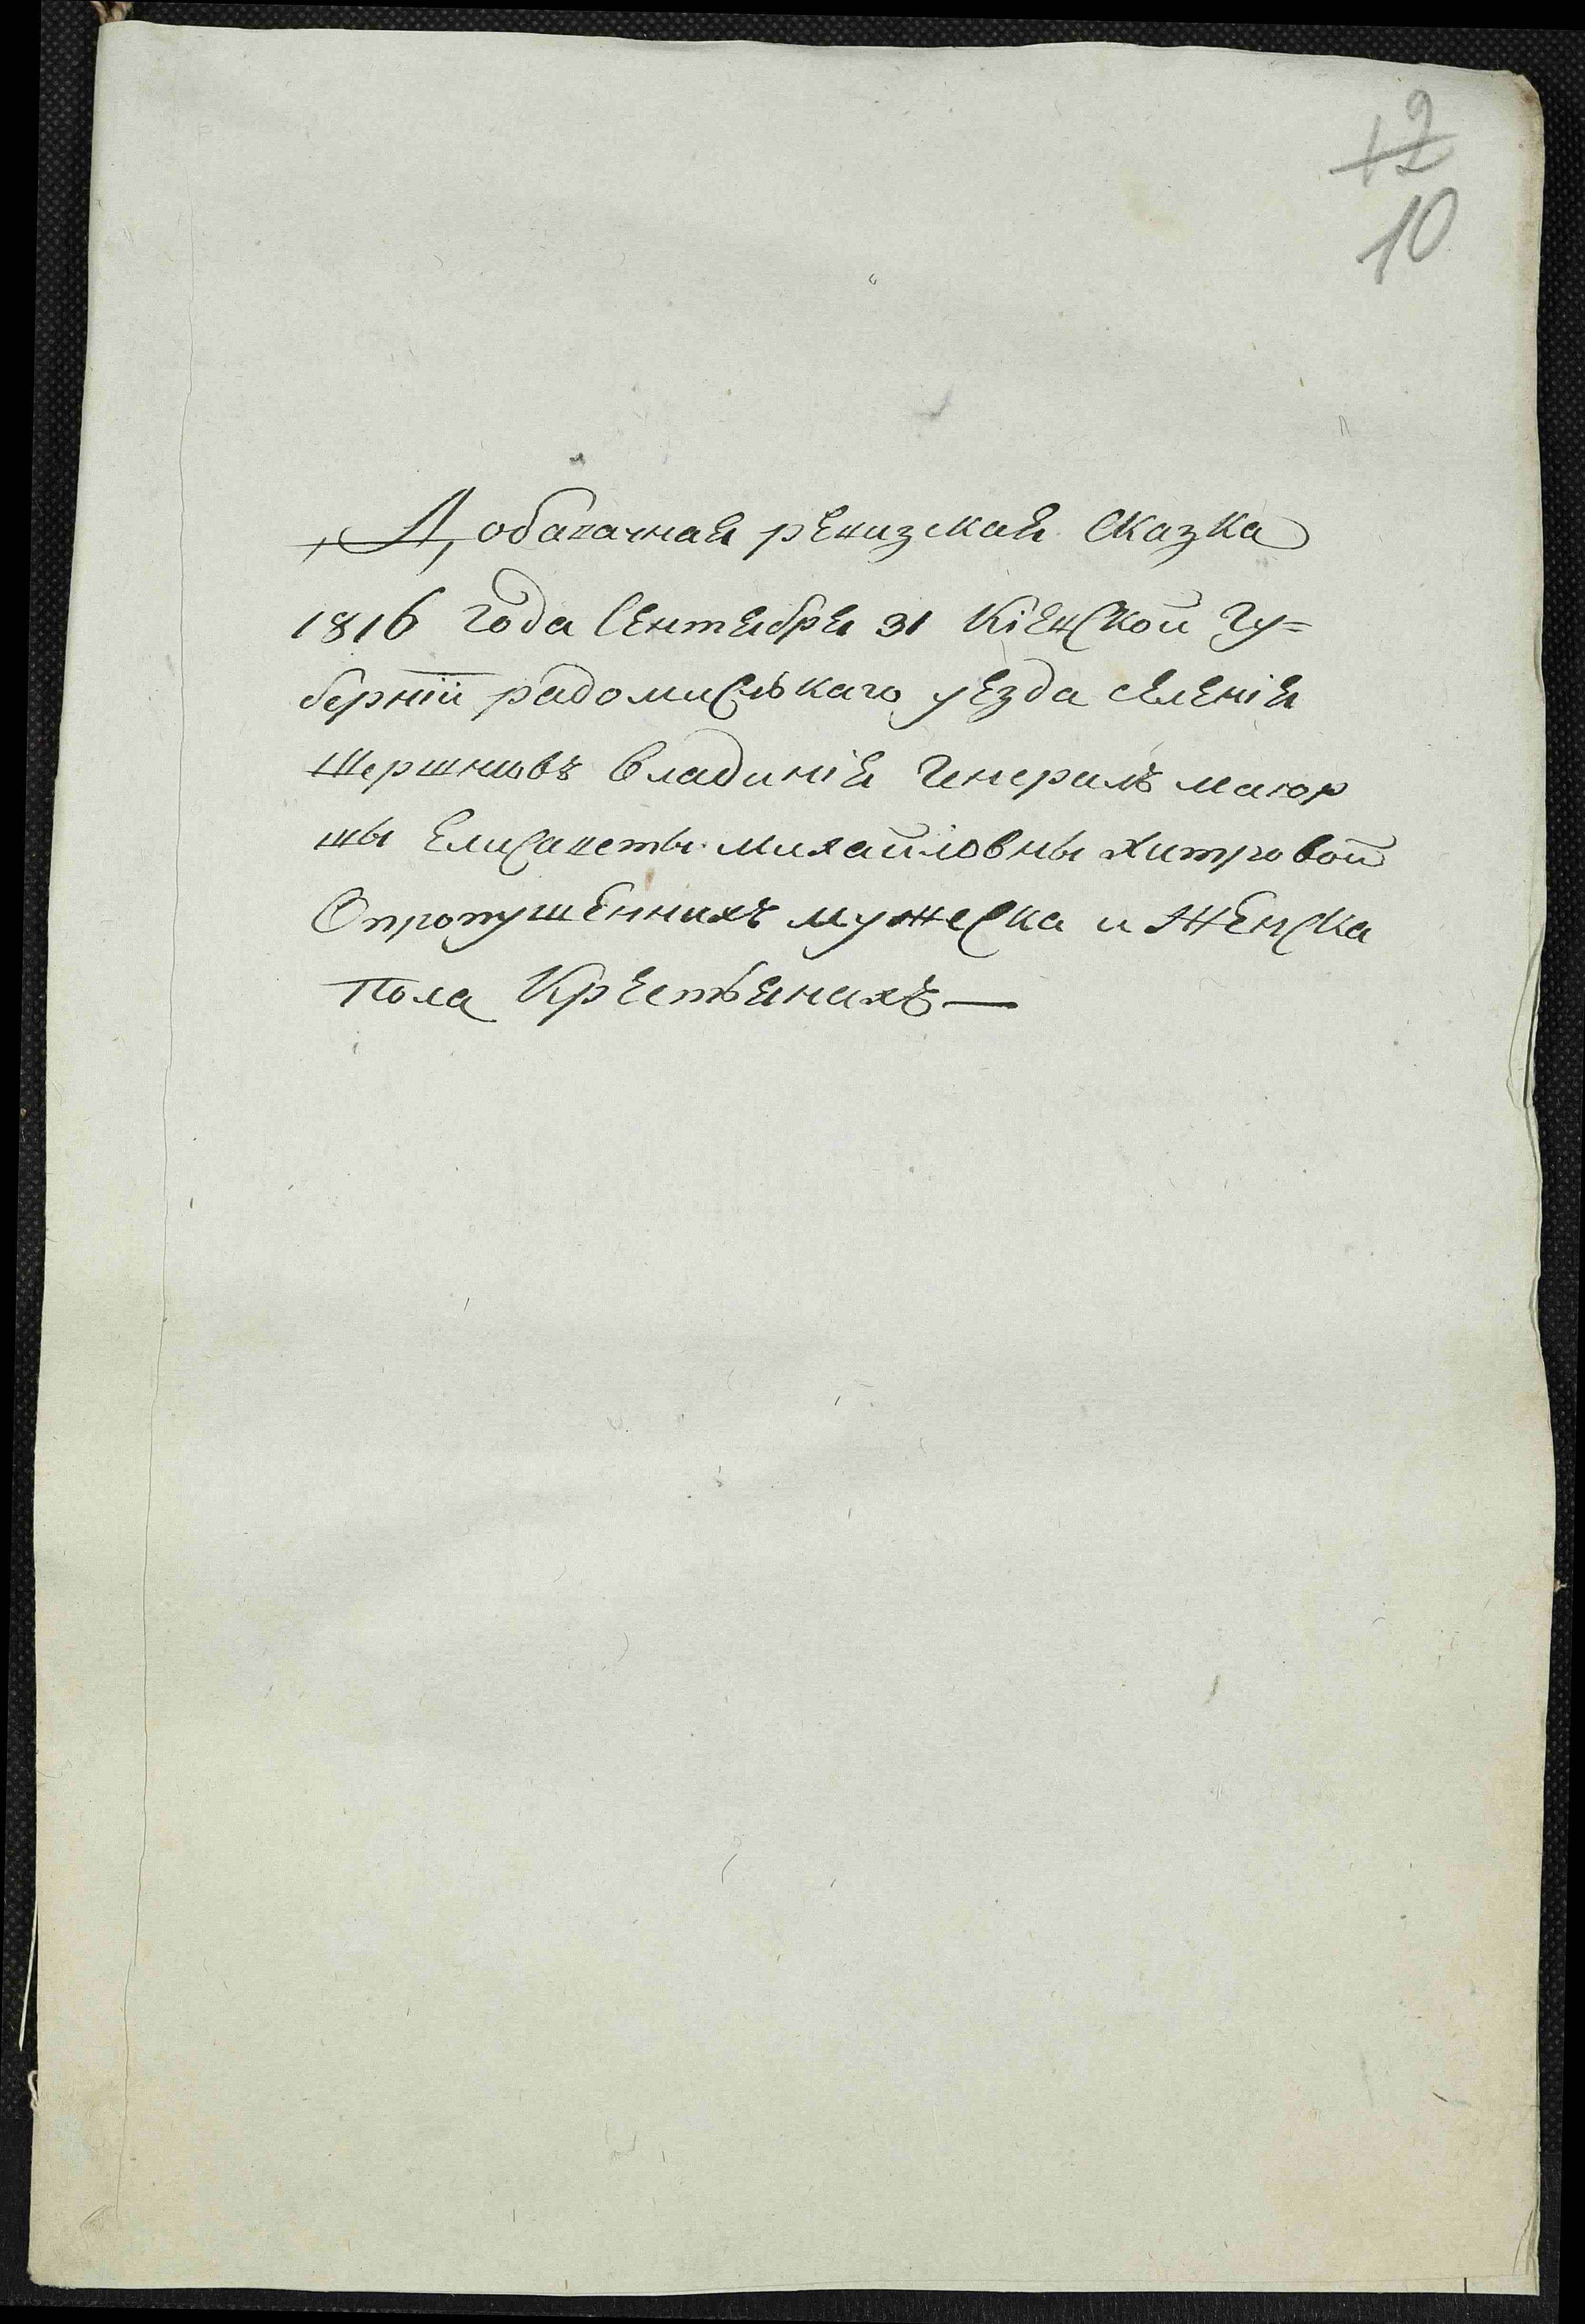 12
10
Добавачная ревизская Сказка
1816 года Сентября 31 Кіевской Гу=
берніи радомисльскаго уезда селенія
Шершньовъ владинія Генералъ маиор
шы Елисаветы михайловны хитровой
О пропушеннихъ мужеска и Женска
пола Крестьянахъ —